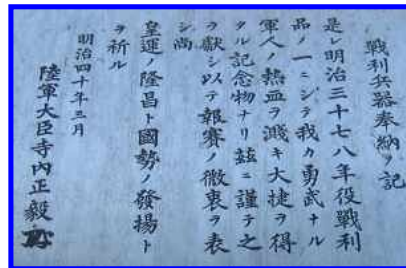 戰利兵器奉納ノ記
是レ明治三十七八年役戰利
品ノ一ニシテ我カ勇武ナル
軍人ノ熱血ヲ濺キ大捷ヲ得
タル記念物ナリ玆ニ謹テ之
ヲ獻シ以テ報賽ノ微衷ヲ表
シ尚
皇運ノ隆昌ト國勢ノ發揚ト
ヲ祈ル
明治四十年三月
陸軍大臣寺內正毅